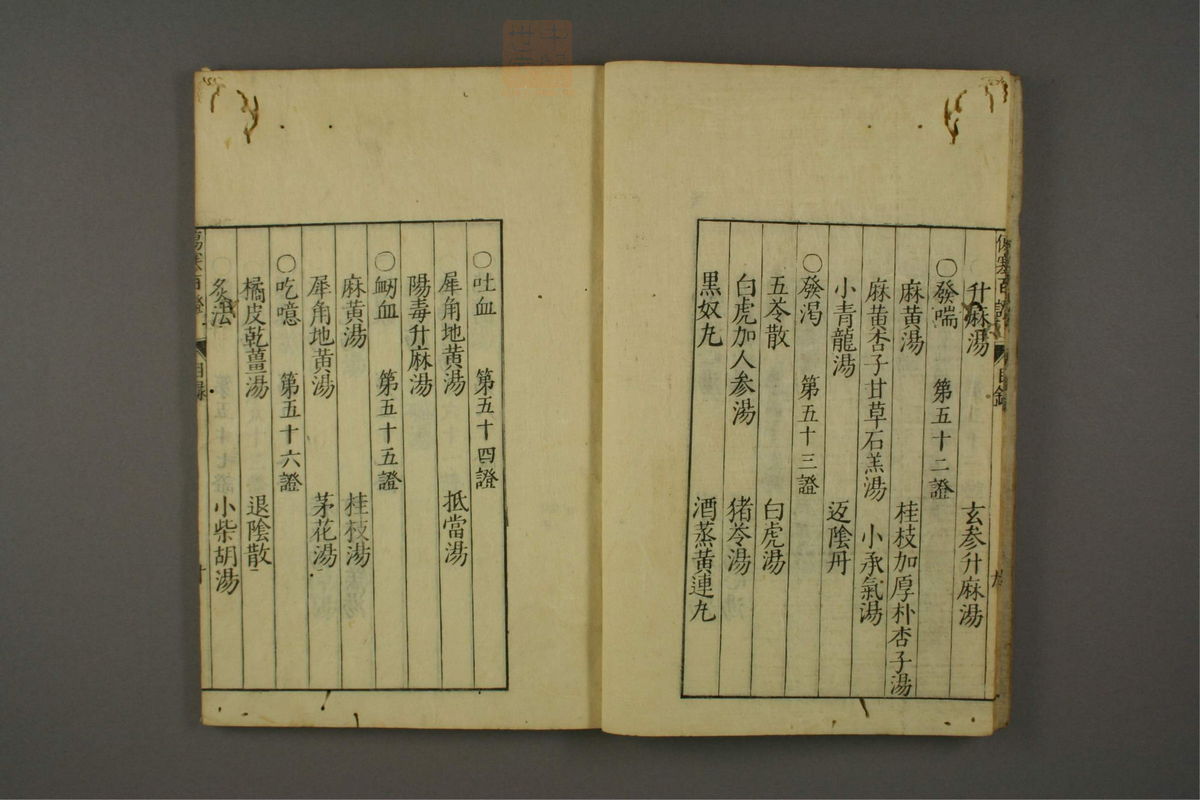 傷寒百證 目錄
升麻湯 玄参升麻湯
○發喘 第五十二證
麻黄湯 桂枝加厚朴杏子湯
麻黄杏子甘草石羔湯 小承氣湯
小青龍湯 返陰丹
○發渴 第五十三證
五苓散 白虎湯
白虎加人参湯 猪苓湯
黒奴丸 酒蒸黄連丸
○吐血 第五十四證
犀角地黄湯 抵當湯
陽毒升麻湯
○衂血 第五十五證
麻黄湯 桂枝湯
犀角地黄湯 茅花湯
○吃噫 第五十六證
橘皮乾薑湯 退陰散
炙法 小柴胡湯
目錄 十